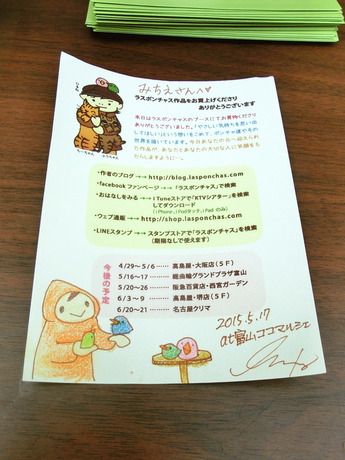 みちえさんへ♡
ラスポンチャス作品をお買上げくださり
ありがとうございます
本日はラスポンチャスのブースにてお買物くださり
ありがとうございました。「やさしい気持ちを思い出
してほしい」という想いをこめて、ポンチャ達やその
世界を描いています。今日あなたの元へ迎えられ
た作品が、あなたとあなたの大切な人に笑顔をも
たらしますように…。
・作者のブログ →→ http://blog.lasponchas.com
・facebook ファンページ →→「ラスポンチャス」で検索
・おはなしをみる →→ i Tuneストアで「KTVシアター」を検索
してダウンロード
(iPhone、iPodタッチ、iPad のみ)
・ウェブ通販 →→ http://shop.lasponchas.com
・LINEスタンプ →→ スタンプストアで「ラスポンチャス」を検索
(期限なしで使えます)
今後の予定
4/29~5/6 …… 高島屋・大阪店(5F)
5/16~17 …… 総曲輪グランドプラザ富山
5/20~26 …… 阪急百貨店・西宮ガーデン
6/3~9 …… 高島屋・堺店(5F)
6/20~21 …… 名古屋クリマ
2015.5.17
at富山ココマルシェ